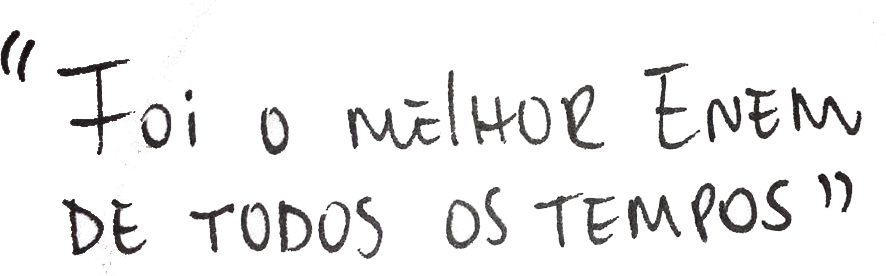 "Foi o melhor Enem
de todos os tempos"